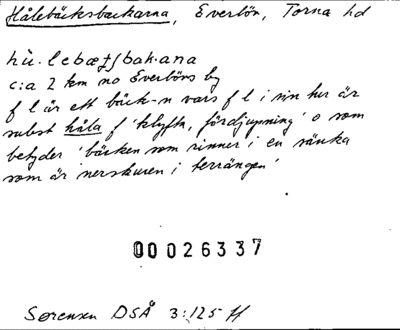 Hålebäcksbackarna, Everlöv, Torna hd
hù.lebæʃbak.ana
c:a 2 km no Everlövs by
f l är ett bäck-n vars f l i sin tur är
subst håla f 'klyfta, fördjupning' o som
betyder 'bäcken som rinner i en sänka
som är nerskuren i terrängen'
00026337
Sørensen DSÅ 3:125 ff